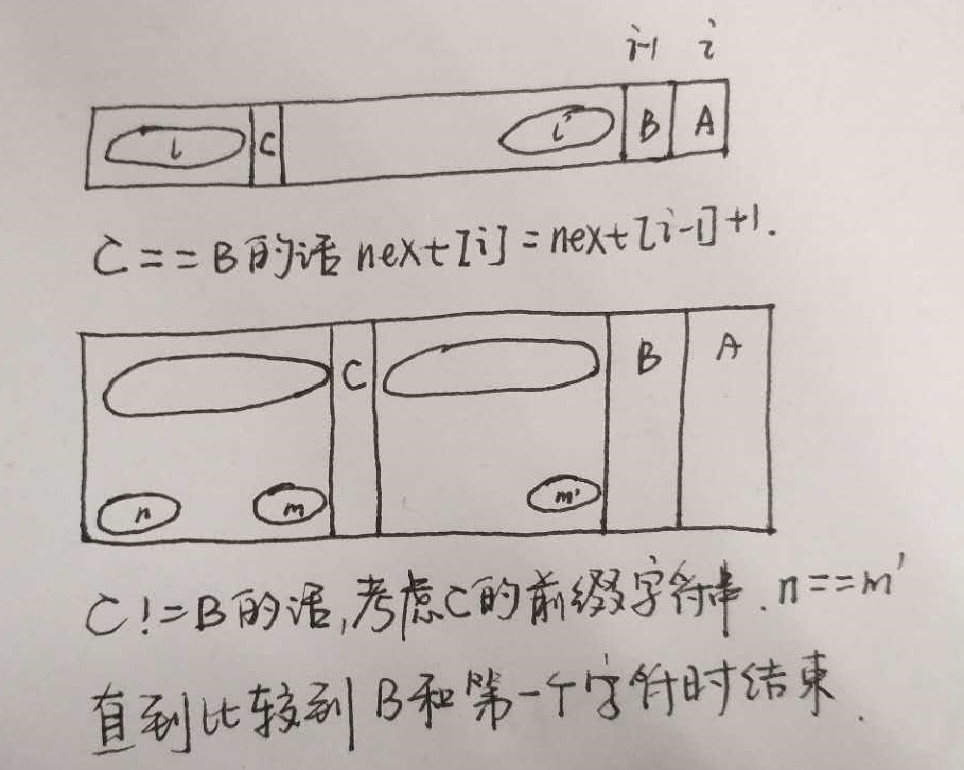 i-1 i
l C l' B A
C==B的话 next[i]=next[i-1]+1.
C B A
n m m'
C!=B的话,考虑C的前缀字符串.n==m'
直到比较到B和第一个字符时结束.